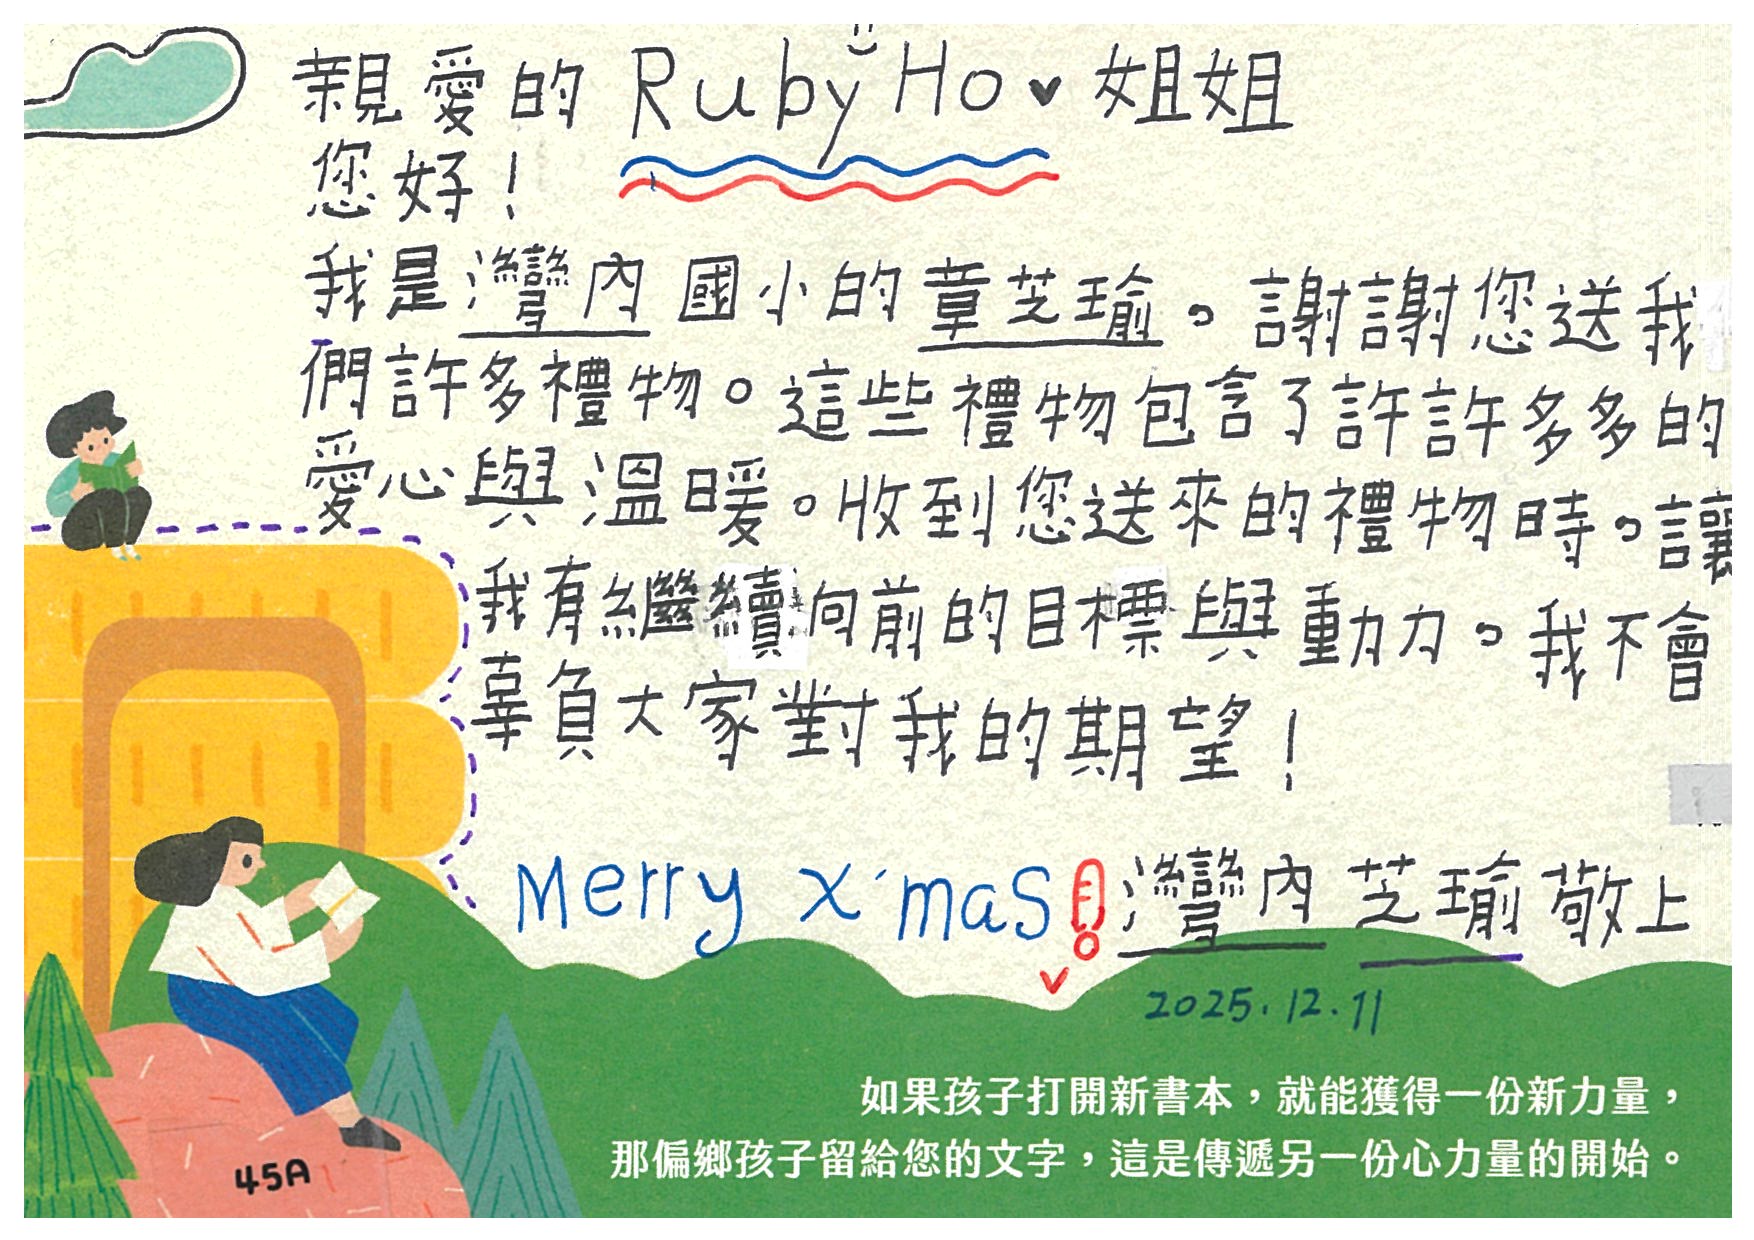 親愛的 Ruby Ho ♥ 姐姐
您好！
我是灣內國小的章芝瑜。謝謝您送我
們許多禮物。這些禮物包含了許許多多的
愛心與溫暖。收到您送來的禮物時。讓
我有繼續向前的目標與動力。我不會
辜負大家對我的期望！
Merry X'mas! 灣內 芝瑜 敬上
2025.12.11
如果孩子打開新書本，就能獲得一份新力量，
那偏鄉孩子留給您的文字，這是傳遞另一份心力量的開始。
45A